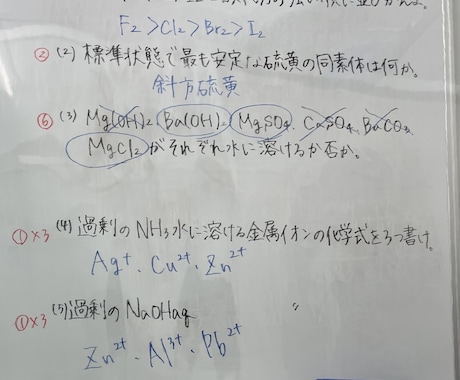 F₂ > Cl₂ > Br₂ > I₂
② (2) 標準状態で最も安定な硫黄の同素体は何か。
斜方硫黄
⑥ (3) Mg(OH)₂ Ba(OH)₂ MgSO₄ CaSO₄, BaCO₃,
MgCl₂ がそれぞれ水に溶けるか否か。
①×3 (4) 過剰のNH₃水に溶ける金属イオンの化学式を3つ書け。
Ag⁺・Cu²⁺・Zn²⁺
①×3 (5) 過剰のNaOHaq 〃
Zn²⁺・Al³⁺・Pb²⁺